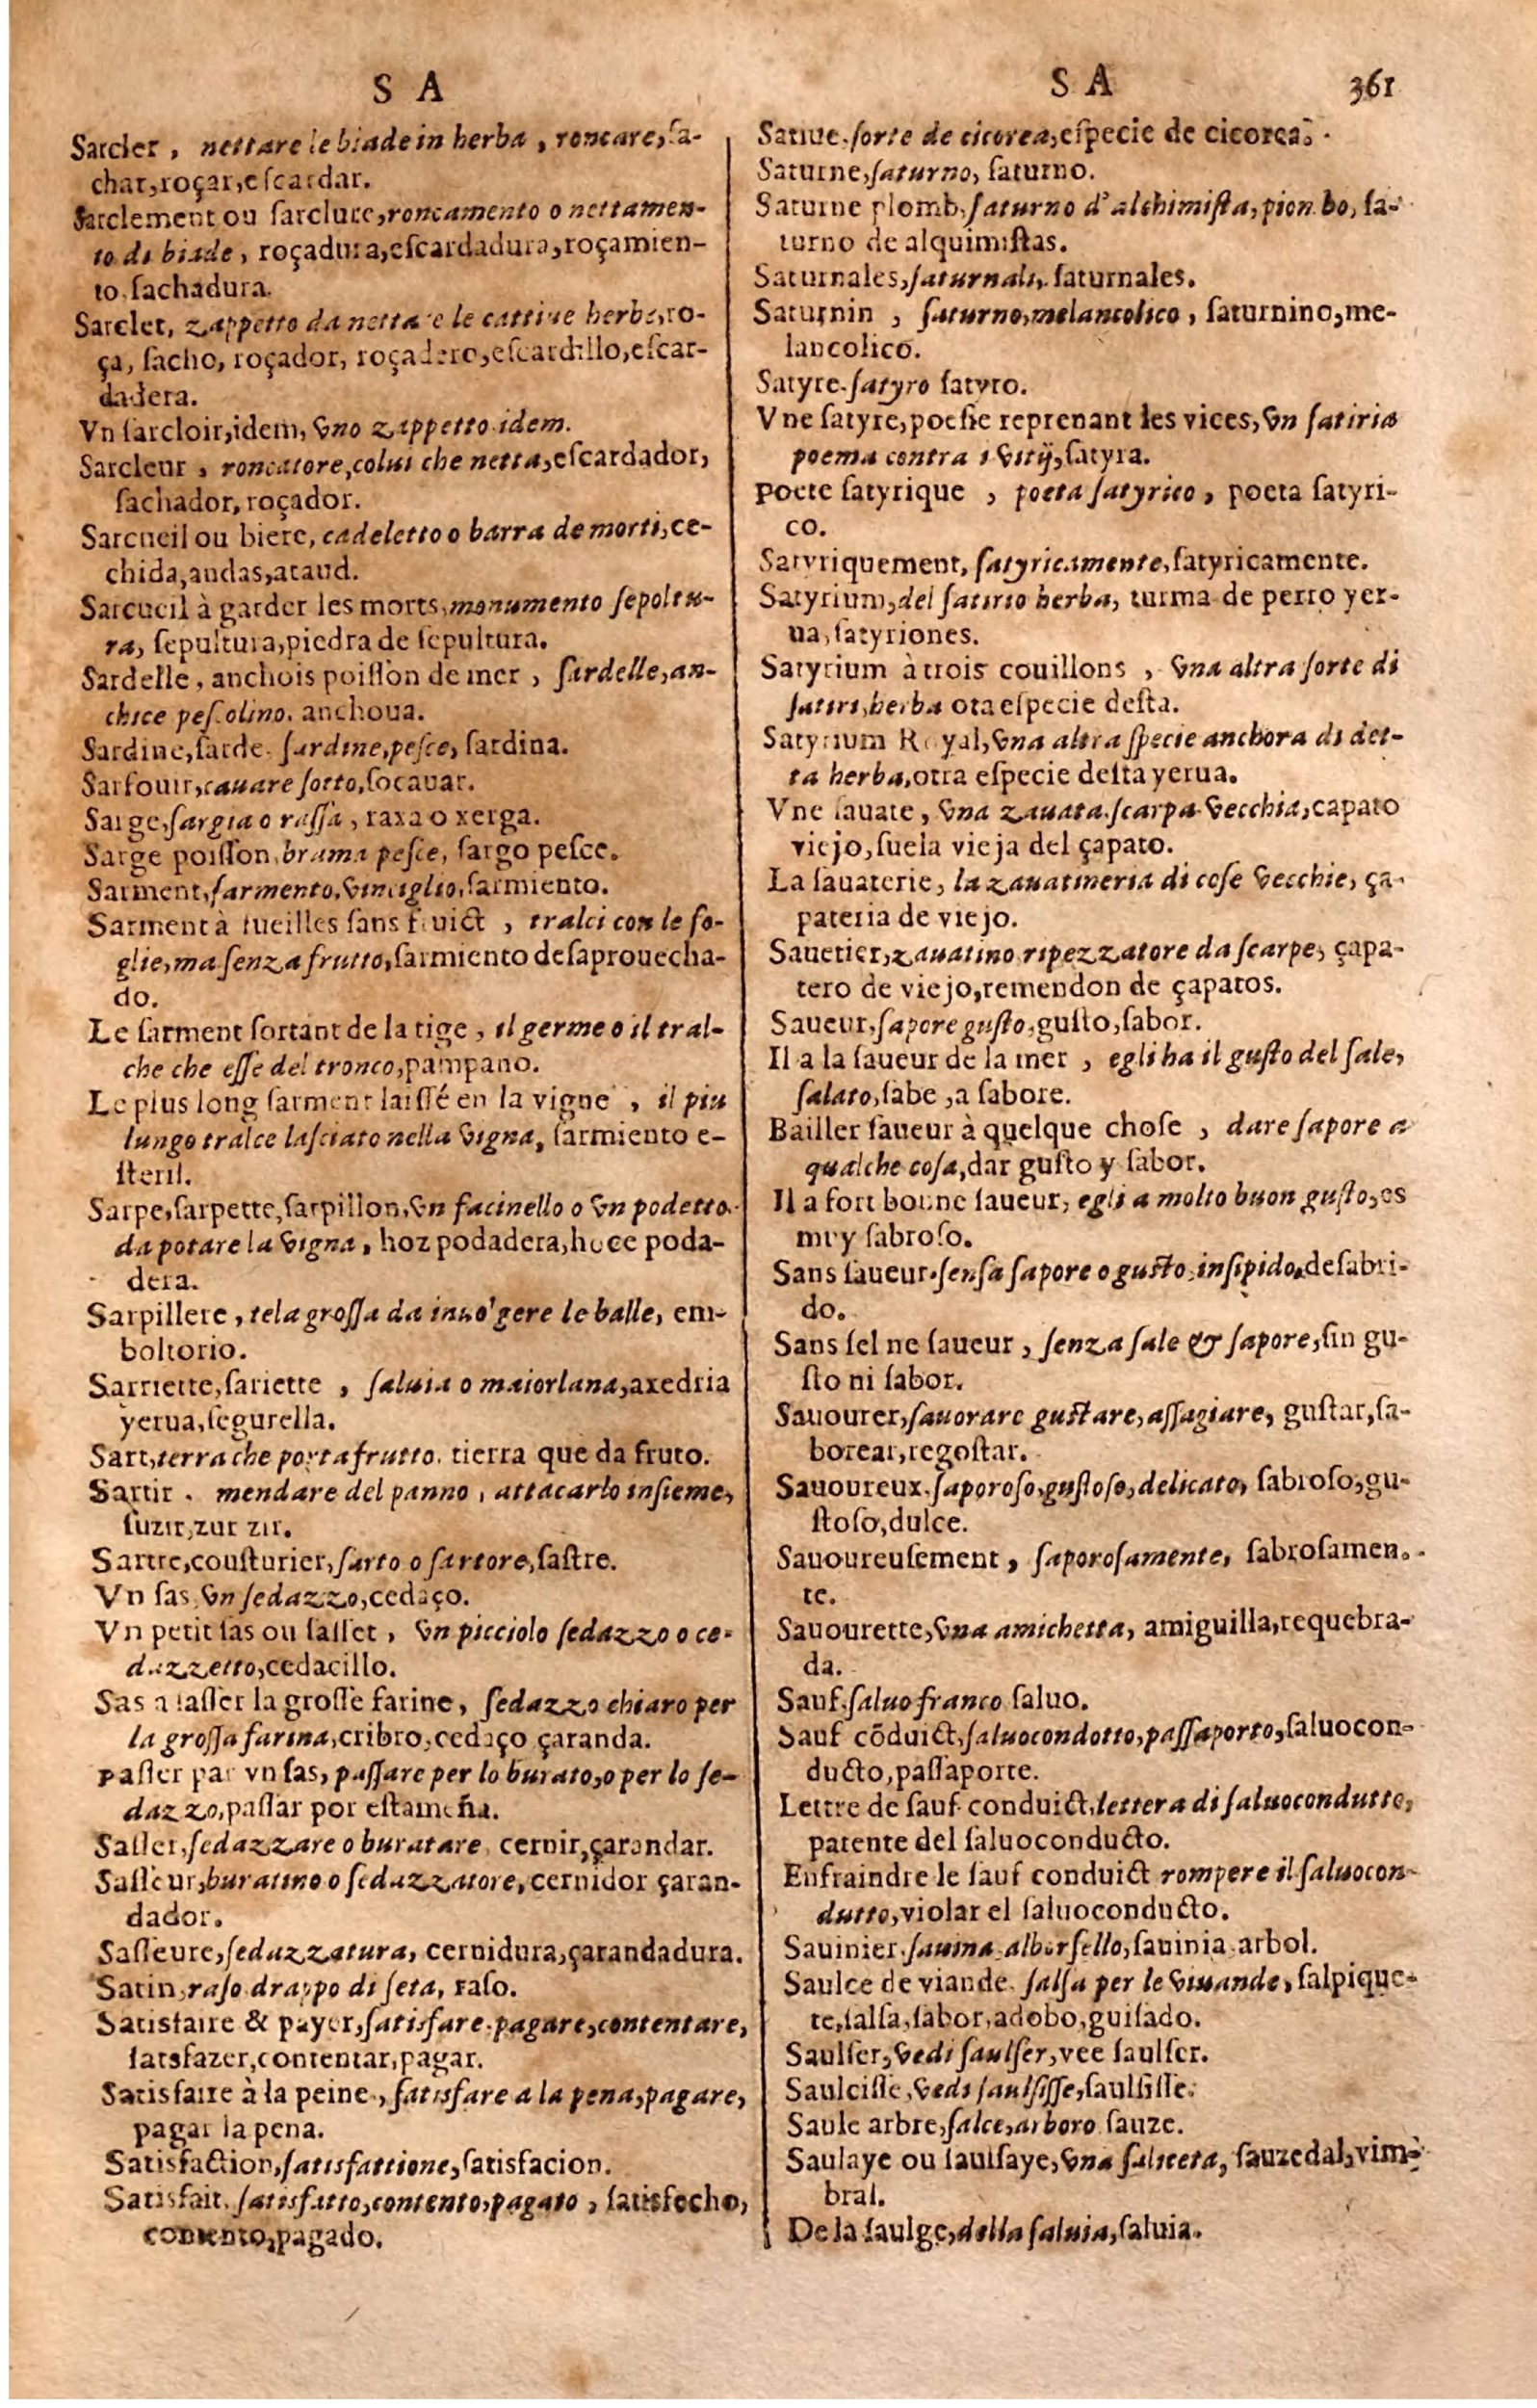 S A
Sarcler, nettare le biade in herba, roncare, sa-
char, roçar, escardar.
Sarclement ou sarclure, roncamento o nettamen-
to di biade, roçadura, escardadura, roçamien-
to, sachadura.
Sarclet, zappetto da nettare le cattiue herbe, ro-
ça, sacho, roçador, roçadero, escardillo, escar-
dadera.
Vn sarcloir, idem, vno zappetto idem.
Sarcleur, roncatore, colui che netta, escardador,
sachador, roçador.
Sarcueil ou biere, cadeletto o barra de morti, ce-
chida, andas, ataud.
Sarcueil à garder les morts, monumento sepoltu-
ra, sepultura, piedra de sepultura.
Sardelle, anchois poisson de mer, sardelle, an-
chice pescolino, anchoua.
Sardine, sarde, sardine, pesce, sardina.
Sarfouir, cauare sotto, socauar.
Sarge, sargia o rassa, raxa o xerga.
Sarge poisson, brama pesce, sargo pesce.
Sarment, sarmento, vinciglio, sarmiento.
Sarment à fueilles sans fruict, tralci con le fo-
glie, ma senza frutto, sarmiento desaprouecha-
do.
Le sarment sortant de la tige, il germe o il tral-
che che esse del tronco, pampano.
Le plus long sarment laissé en la vigne, il piu
lungo tralce lasciato nella vigna, sarmiento e-
steril.
Sarpe, sarpette, sarpillon, vn facinello o vn podetto
da potare la vigna, hoz podadera, hoce poda-
dera.
Sarpillere, tela grossa da inuo'gere le balle, em-
boltorio.
Sarriette, sariette, saluia o maiorlana, axedria
yerua, segurella.
Sart, terra che porta frutto, tierra que da fruto.
Sartir, mendare del panno, attacarlo insieme,
suzir, zur zir.
Sartre, cousturier, sarto o sartore, sastre.
Vn sas, vn sedazzo, cedaço.
Vn petit sas ou sasset, vn picciolo sedazzo o ce-
dazzetto, cedacillo.
Sas a sasser la grosse farine, sedazzo chiaro per
la grossa farina, cribro, cedaço çaranda.
Passer par vn sas, passare per lo burato, o per lo se-
dazzo, passar por estameña.
Sasser, sedazzare o buratare, cernir, çarandar.
Sasseur, buratino o sedazzatore, cernidor çaran-
dador.
Sasseure, sedazzatura, cernidura, çarandadura.
Satin, raso drappo di seta, raso.
Satisfaire & payer, satisfare, pagare, contentare,
satsfazer, contentar, pagar.
Satisfaire à la peine, satisfare a la pena, pagare,
pagar la pena.
Satisfaction, satisfattione, satisfacion.
Satisfait, satisfatto, contento, pagato, satisfecho,
contento, pagado.
S A 361
Satiue, sorte de cicorea, especie de cicorea.
Saturne, saturno, saturno.
Saturne plomb, saturno d'alchimista, piombo, sa-
turno de alquimistas.
Saturnales, saturnali, saturnales.
Saturnin, saturno, melancolico, saturnino, me-
lancolico.
Satyre, satyro satyro.
Vne satyre, poesie reprenant les vices, vn satiria
poema contra i vitij, satyra.
Poete satyrique, poeta satyrico, poeta satyri-
co.
Satyriquement, satyricamente, satyricamente.
Satyrium, del satirio herba, turma de perro yer-
ua, satyriones.
Satyrium à trois couillons, vna altra sorte di
satiri, herba otra especie desta.
Satyrium Royal, vna altra specie anchora di det-
ta herba, otra especie desta yerua.
Vne sauate, vna zauata, scarpa vecchia, capato
viejo, suela vieja del çapato.
La sauaterie, la zauatineria di cose vecchie, ça-
pateria de viejo.
Sauetier, zauatino ripezzatore da scarpe, çapa-
tero de viejo, remendon de çapatos.
Saueur, sapore gusto, gusto, sabor.
Il a la saueur de la mer, egli ha il gusto del sale,
salato, sabe, a sabore.
Bailler saueur à quelque chose, dare sapore a
qualche cosa, dar gusto y sabor.
Il a fort bonne saueur, egli a molto buon gusto, es
muy sabroso.
Sans saueur, sensa sapore o gusto, insipido, desabri-
do.
Sans sel ne saueur, senza sale & sapore, sin gu-
sto ni sabor.
Sauourer, sauorare gustare, assagiare, gustar, sa-
borear, regostar.
Sauoureux, saporoso, gustoso, delicato, sabroso, gu-
stoso, dulce.
Sauoureusement, saporosamente, sabrosamen-
te.
Sauourette, vna amichetta, amiguilla, requebra-
da.
Sauf, saluo franco saluo.
Sauf cõduict, saluocondotto, passaporto, saluocon-
ducto, passaporte.
Lettre de sauf conduict, lettera di saluocondutto,
patente del saluoconducto.
Enfraindre le sauf conduict rompere il saluocon-
dutto, violar el saluoconducto.
Sauinier, sauina, alborsello, sauinia arbol.
Saulce de viande, salsa per le viuande, salpique-
te, salsa, sabor, adobo, guisado.
Saulser, vedi saulser, vee saulser.
Saulcisse, vedi saulsisse, saulsisse.
Saule arbre, salce, arboro sauze.
Saulaye ou saulsaye, vna saliceta, sauzedal, vim-
bral.
De la saulge, della saluia, saluia.